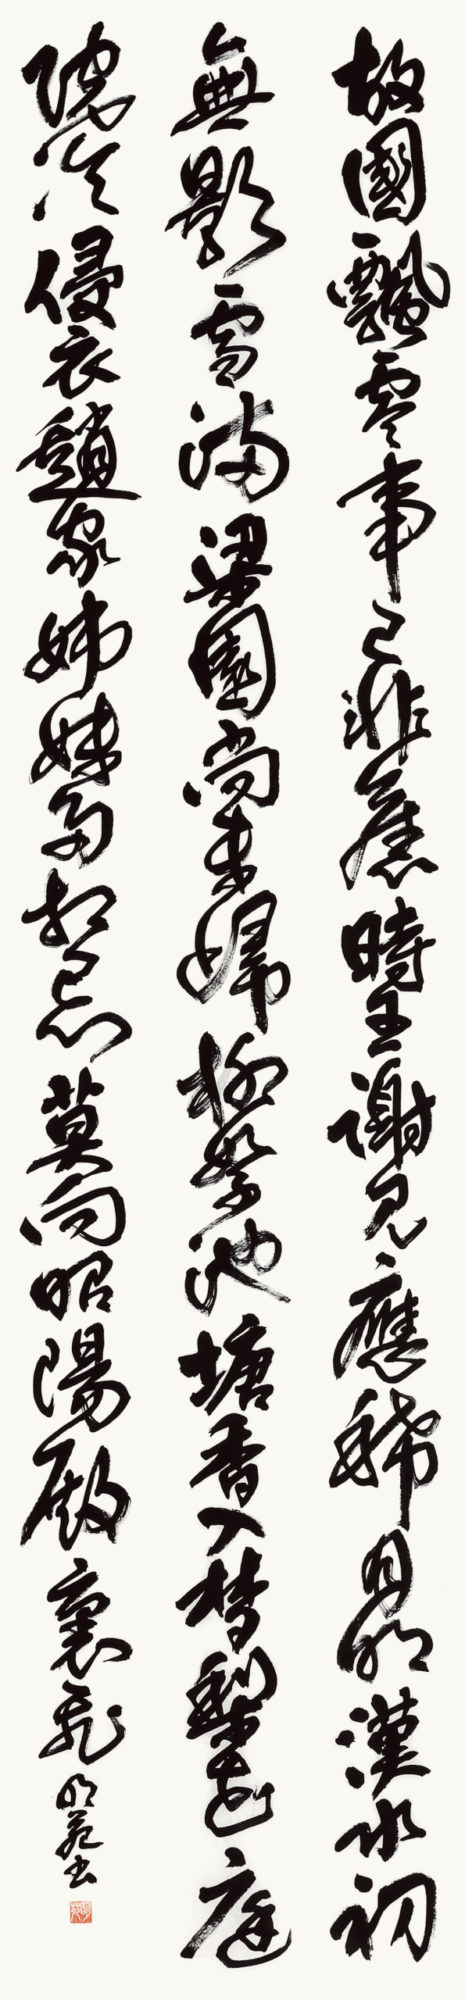 故國飄零事已非舊時王謝見應稀月明漢水初
無影雪滿梁園尚未歸柳絮池塘香入夢梨花庭
院冷侵衣趙家姊妹多相忌莫向昭陽殿裏飛 明苑書